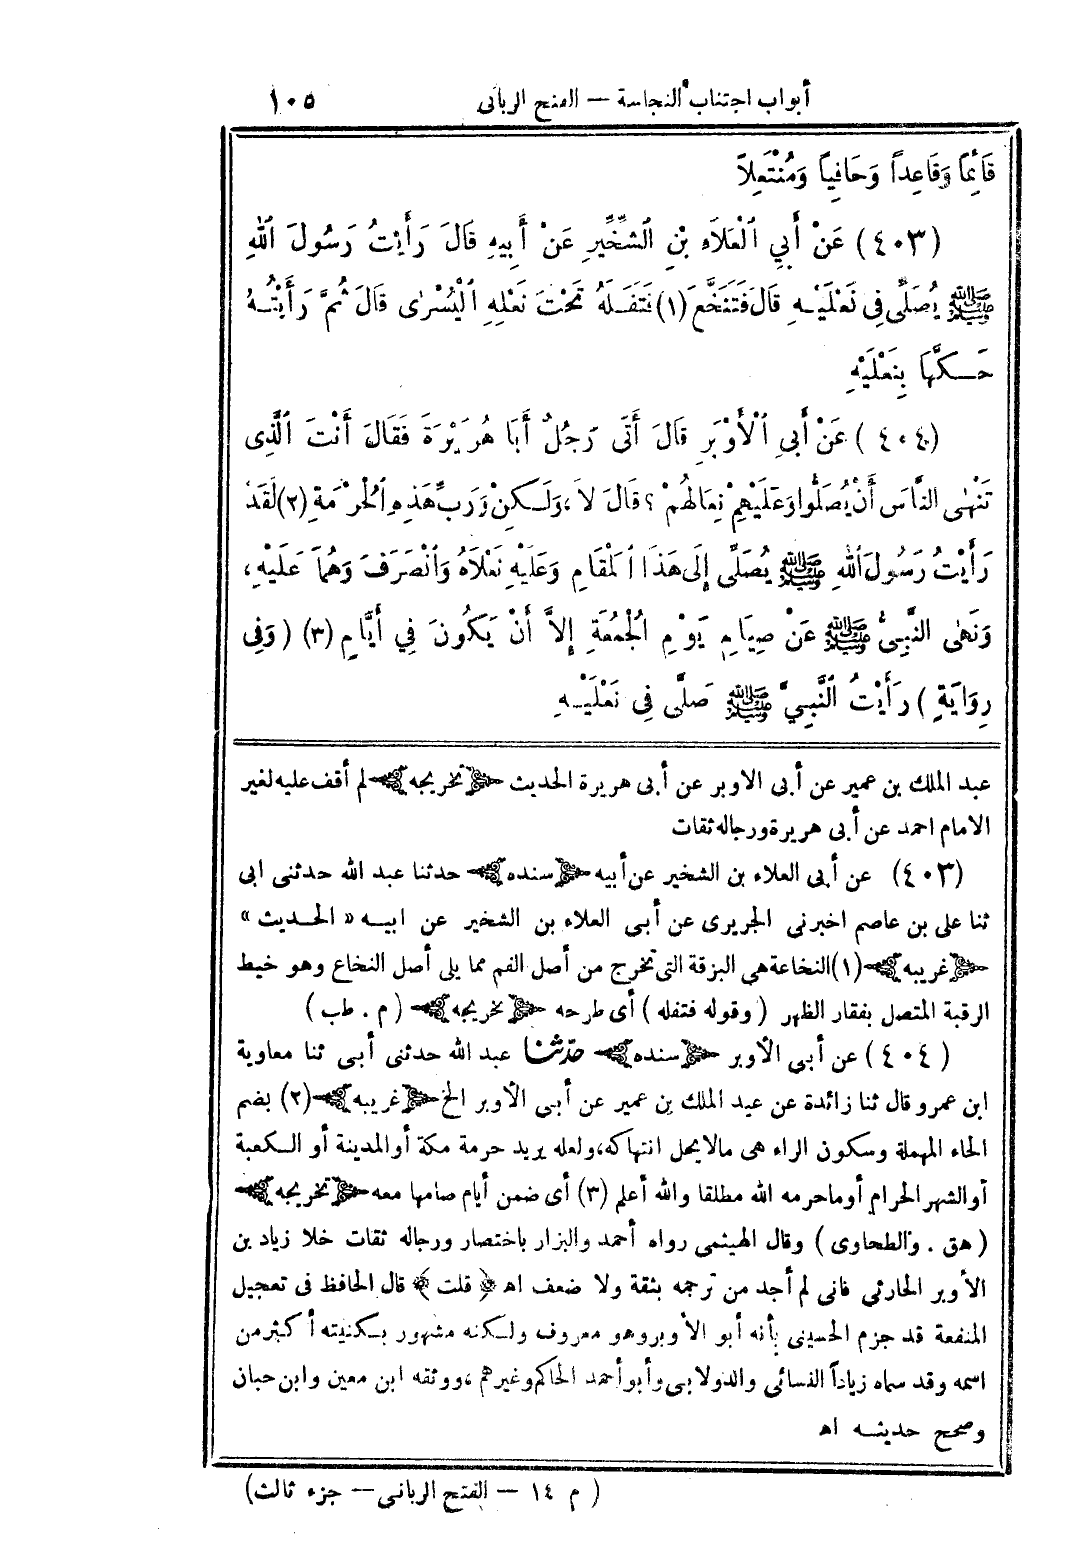 أبواب اجتناب النجاسة — الفتح الرباني ١٠٥
قَائِمًا وَقَاعِداً وَحَافِياً وَمُنْتَعِلاً
(٤٠٣) عَنْ أَبِي الْعَلاَءِ بْنِ الشِّخِّيرِ عَنْ أَبِيهِ قَالَ رَأَيْتُ رَسُولَ اللهِ
ﷺ يُصَلِّي فِي نَعْلَيْهِ قَالَ فَتَنَخَّعَ (١) فَتَفَلَهُ تَحْتَ نَعْلِهِ الْيُسْرٰى قَالَ ثُمَّ رَأَيْتُهُ
حَكَّهَا بِنَعْلَيْهِ
(٤٠٤) عَنْ أَبِي الْأَوْبَرِ قَالَ أَتَى رَجُلٌ أَبَا هُرَيْرَةَ فَقَالَ أَنْتَ الَّذِي
تَنْهٰى النَّاسَ أَنْ يُصَلُّوا وَعَلَيْهِمْ نِعَالُهُمْ؟ قَالَ لاَ، وَلَكِنْ وَرَبِّ هَذِهِ الْحُرْمَةِ (٢) لَقَدْ
رَأَيْتُ رَسُولَ اللهِ ﷺ يُصَلِّي إِلَى هَذَا الْمَقَامِ وَعَلَيْهِ نَعْلاَهُ وَانْصَرَفَ وَهُمَا عَلَيْهِ،
وَنَهٰى النَّبِيُّ ﷺ عَنْ صِيَامِ يَوْمِ الْجُمُعَةِ إِلاَّ أَنْ يَكُونَ فِي أَيَّامٍ (٣) (وَفِي
رِوَايَةٍ) رَأَيْتُ النَّبِيَّ ﷺ صَلَّى فِي نَعْلَيْهِ
عبد الملك بن عمير عن أبى الاوبر عن أبى هريرة الحديث ﴿تخريجه﴾ لم أقف عليه لغير
الامام احمد عن أبى هريرة ورجاله ثقات
(٤٠٣) عن أبى العلاء بن الشخير عن أبيه ﴿سنده﴾ حدثنا عبد الله حدثنى ابى
ثنا على بن عاصم اخبرنى الجريرى عن أبى العلاء بن الشخير عن ابيه « الحديث »
﴿غريبه﴾ (١) النخاعة هى البزقة التى تخرج من أصل الفم مما يلى أصل النخاع وهو خيط
الرقبة المتصل بفقار الظهر (وقوله فتفله) أى طرحه ﴿تخريجه﴾ (م . طب)
(٤٠٤) عن أبى الأوبر ﴿سنده﴾ حدثنا عبد الله حدثنى أبى ثنا معاوية
ابن عمرو قال ثنا زائدة عن عبد الملك بن عمير عن أبى الأوبر الخ ﴿غريبه﴾ (٢) بضم
الحاء المهملة وسكون الراء هى مالا يحل انتهاكه، ولعله يريد حرمة مكة أو المدينة أو الكعبة
أو الشهر الحرام أو ما حرمه الله مطلقا والله أعلم (٣) أى ضمن أيام صامها معه ﴿تخريجه﴾
(هق . والطحاوى) وقال الهيثمى رواه أحمد والبزار باختصار ورجاله ثقات خلا زياد بن
الأوبر الحارثي فانى لم أجد من ترجمه بثقة ولا ضعف اه ﴿قلت﴾ قال الحافظ فى تعجيل
المنفعة قد جزم الحسينى بأنه أبو الأوبر وهو معروف ولكنه مشهور بكنيته أكثر من
اسمه وقد سماه زياداً النسائى والدولابى وأبو أحمد الحاكم وغيرهم، ووثقه ابن معين وابن حبان
وصحح حديثه اه
(م ١٤ — الفتح الربانى — جزء ثالث)